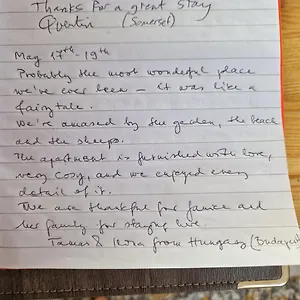 Thanks for a great stay
Quentin (Somerset)
May 17th - 19th
Probably the most wonderful place
we've ever been – it was like a
fairytale.
We're amazed by the garden, the beach
and the sheeps.
The apartment is furnished with love,
very cosy, and we enjoyed every
detail of it.
We are thankful for and
her family for staying here.
Tamas & from Hungary (Budapest)